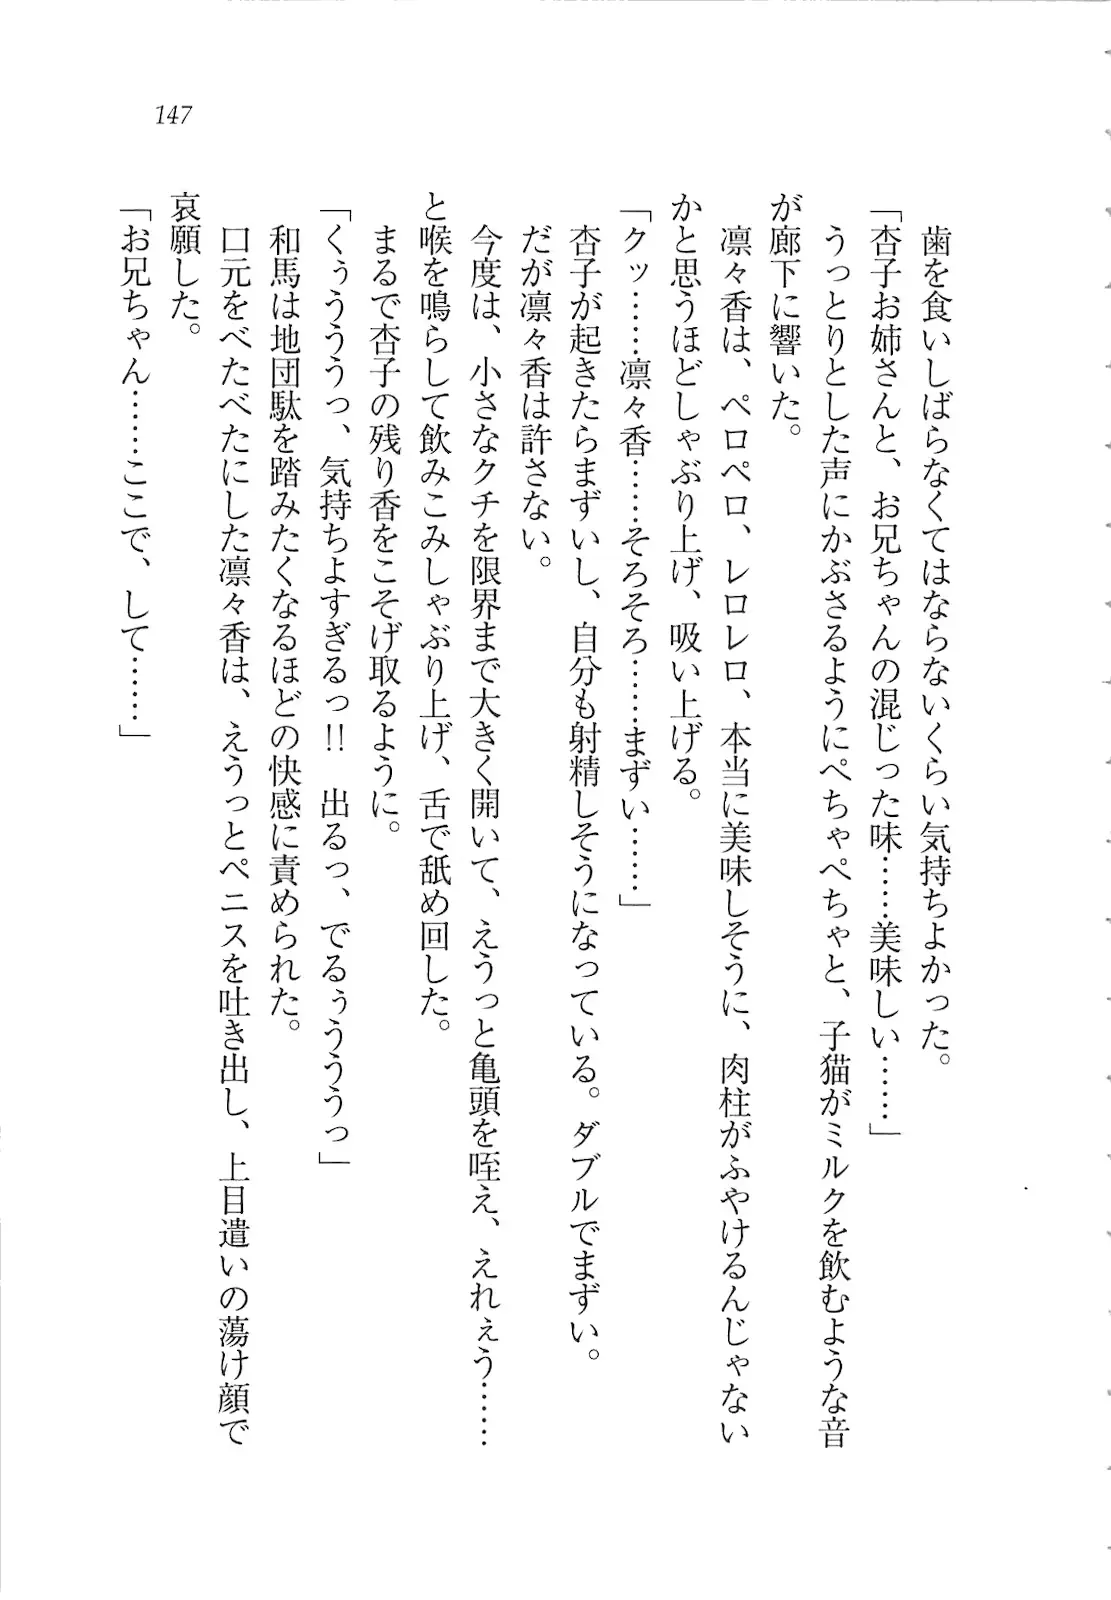 147
歯を食いしばらなくてはならないくらい気持ちよかった。
「杏子お姉さんと、お兄ちゃんの混じった味……美味しい……」
うっとりとした声にかぶさるようにぺちゃぺちゃと、子猫がミルクを飲むような音
が廊下に響いた。
凛々香は、ペロペロ、レロレロ、本当に美味しそうに、肉柱がふやけるんじゃない
かと思うほどしゃぶり上げ、吸い上げる。
「クッ……凛々香……そろそろ……まずい……」
杏子が起きたらまずいし、自分も射精しそうになっている。ダブルでまずい。
だが凛々香は許さない。
今度は、小さなクチを限界まで大きく開いて、えうっと亀頭を咥え、えれぇう……
と喉を鳴らして飲みこみしゃぶり上げ、舌で舐め回した。
まるで杏子の残り香をこそげ取るように。
「くぅうううっ、気持ちよすぎるっ!!　出るっ、でるぅうううっ」
和馬は地団駄を踏みたくなるほどの快感に責められた。
口元をべたべたにした凛々香は、えうっとペニスを吐き出し、上目遣いの蕩け顔で
哀願した。
「お兄ちゃん……ここで、して……」